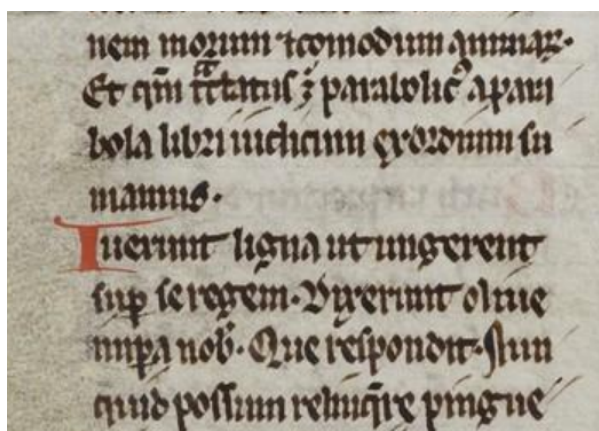 nem morum ⁊ comodum animar᷑.
Et qm̄ tͣctatus ē parabolicꝰ a para
bola libri iudicum exordium su
mamus.
Iuerunt ligna ut ungerent
suꝑ se regem. Dixerunt oliue
impa nob̄. Que respondit. Nun
quid possum relinq̄re pingue